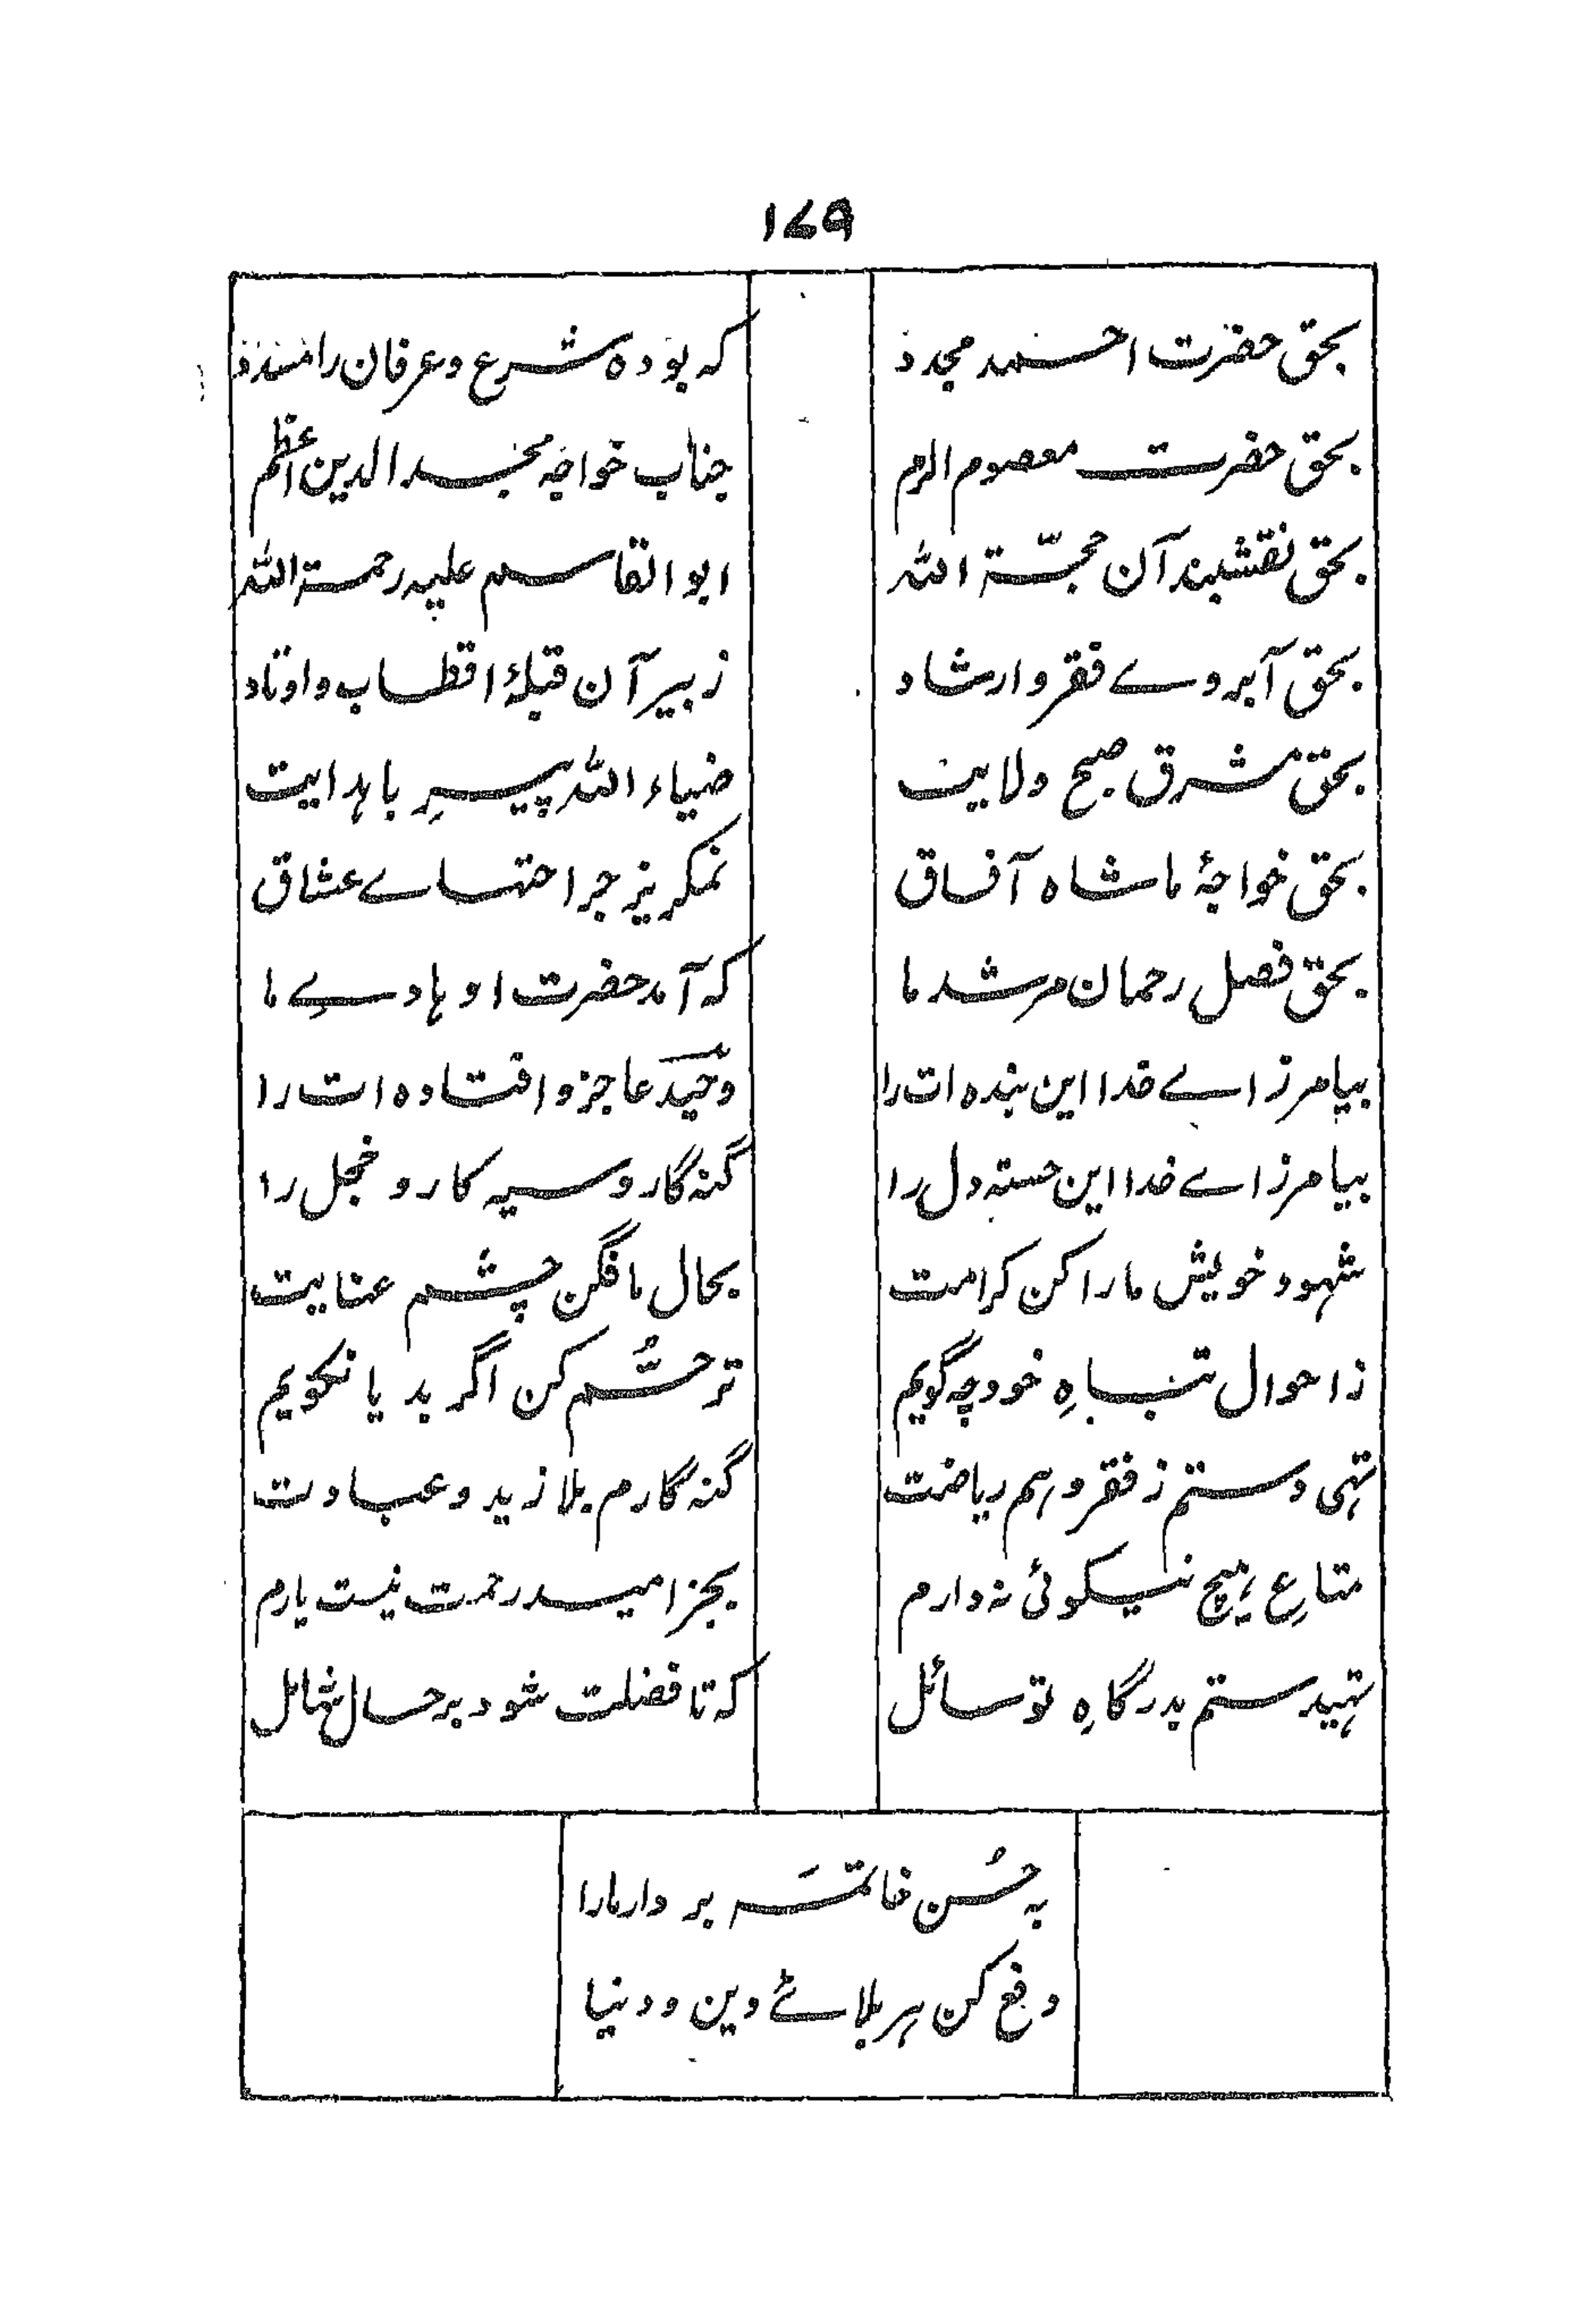 ۱۷۹
بحق حضرت احمد مجدد
کہ بودہ شرع و عرفان را
بحق حضرت معصوم اکرم
جناب خواجہ مجد الدین اعظم
بحق نقشبند آن حجّۃ اللہ
ابو القاسم علیہ رحمۃ اللہ
بحق آبروے فقر و ارشاد
زبیر آن قبلۂ اقطاب و اوتاد
بحق مشرق صبح ولایت
ضیاء اللہ پیرِ با ہدایت
بحق خواجۂ ما شاہ آفاق
نمکریز جراحتہاے عشاق
بحق فضل رحمان مرشد ما
کہ آمد حضرت او ہادیِ ما
بیامرز اے خدا این بندہ ات را
وحید عاجز و افتادہ ات را
بیامرز اے خدا این خستہ دل را
گنہ گار و سیہ کار و خجل را
شہود خویش ما را کن کرامت
بحال ما فگن چشم عنایت
ز احوال تباہِ خود چہ گویم
ترحُّم کن اگر بد یا نکویم
تہی دستم ز فقر و ہم ریاضت
گنہ گارم بلا زہد و عبادت
متاعِ ہیچ نیکوئی نہ دارم
بجز امید رحمت نیست یارم
تہیدستم بدرگاہِ تو سائل
کہ تا فضلت شود بر حال شامل
بہ حُسن خاتمہَ بر دار ما را
دفع کن ہر بلائے دین و دنیا